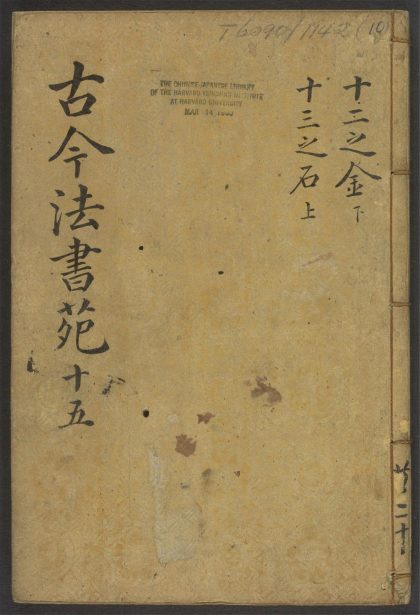 THE CHINESE-JAPANESE LIBRARY
OF THE HARVARD-YENCHING INSTITUTE
AT HARVARD UNIVERSITY
MAR 14
十二之金下
十三之石上
古今法書苑十五
二十